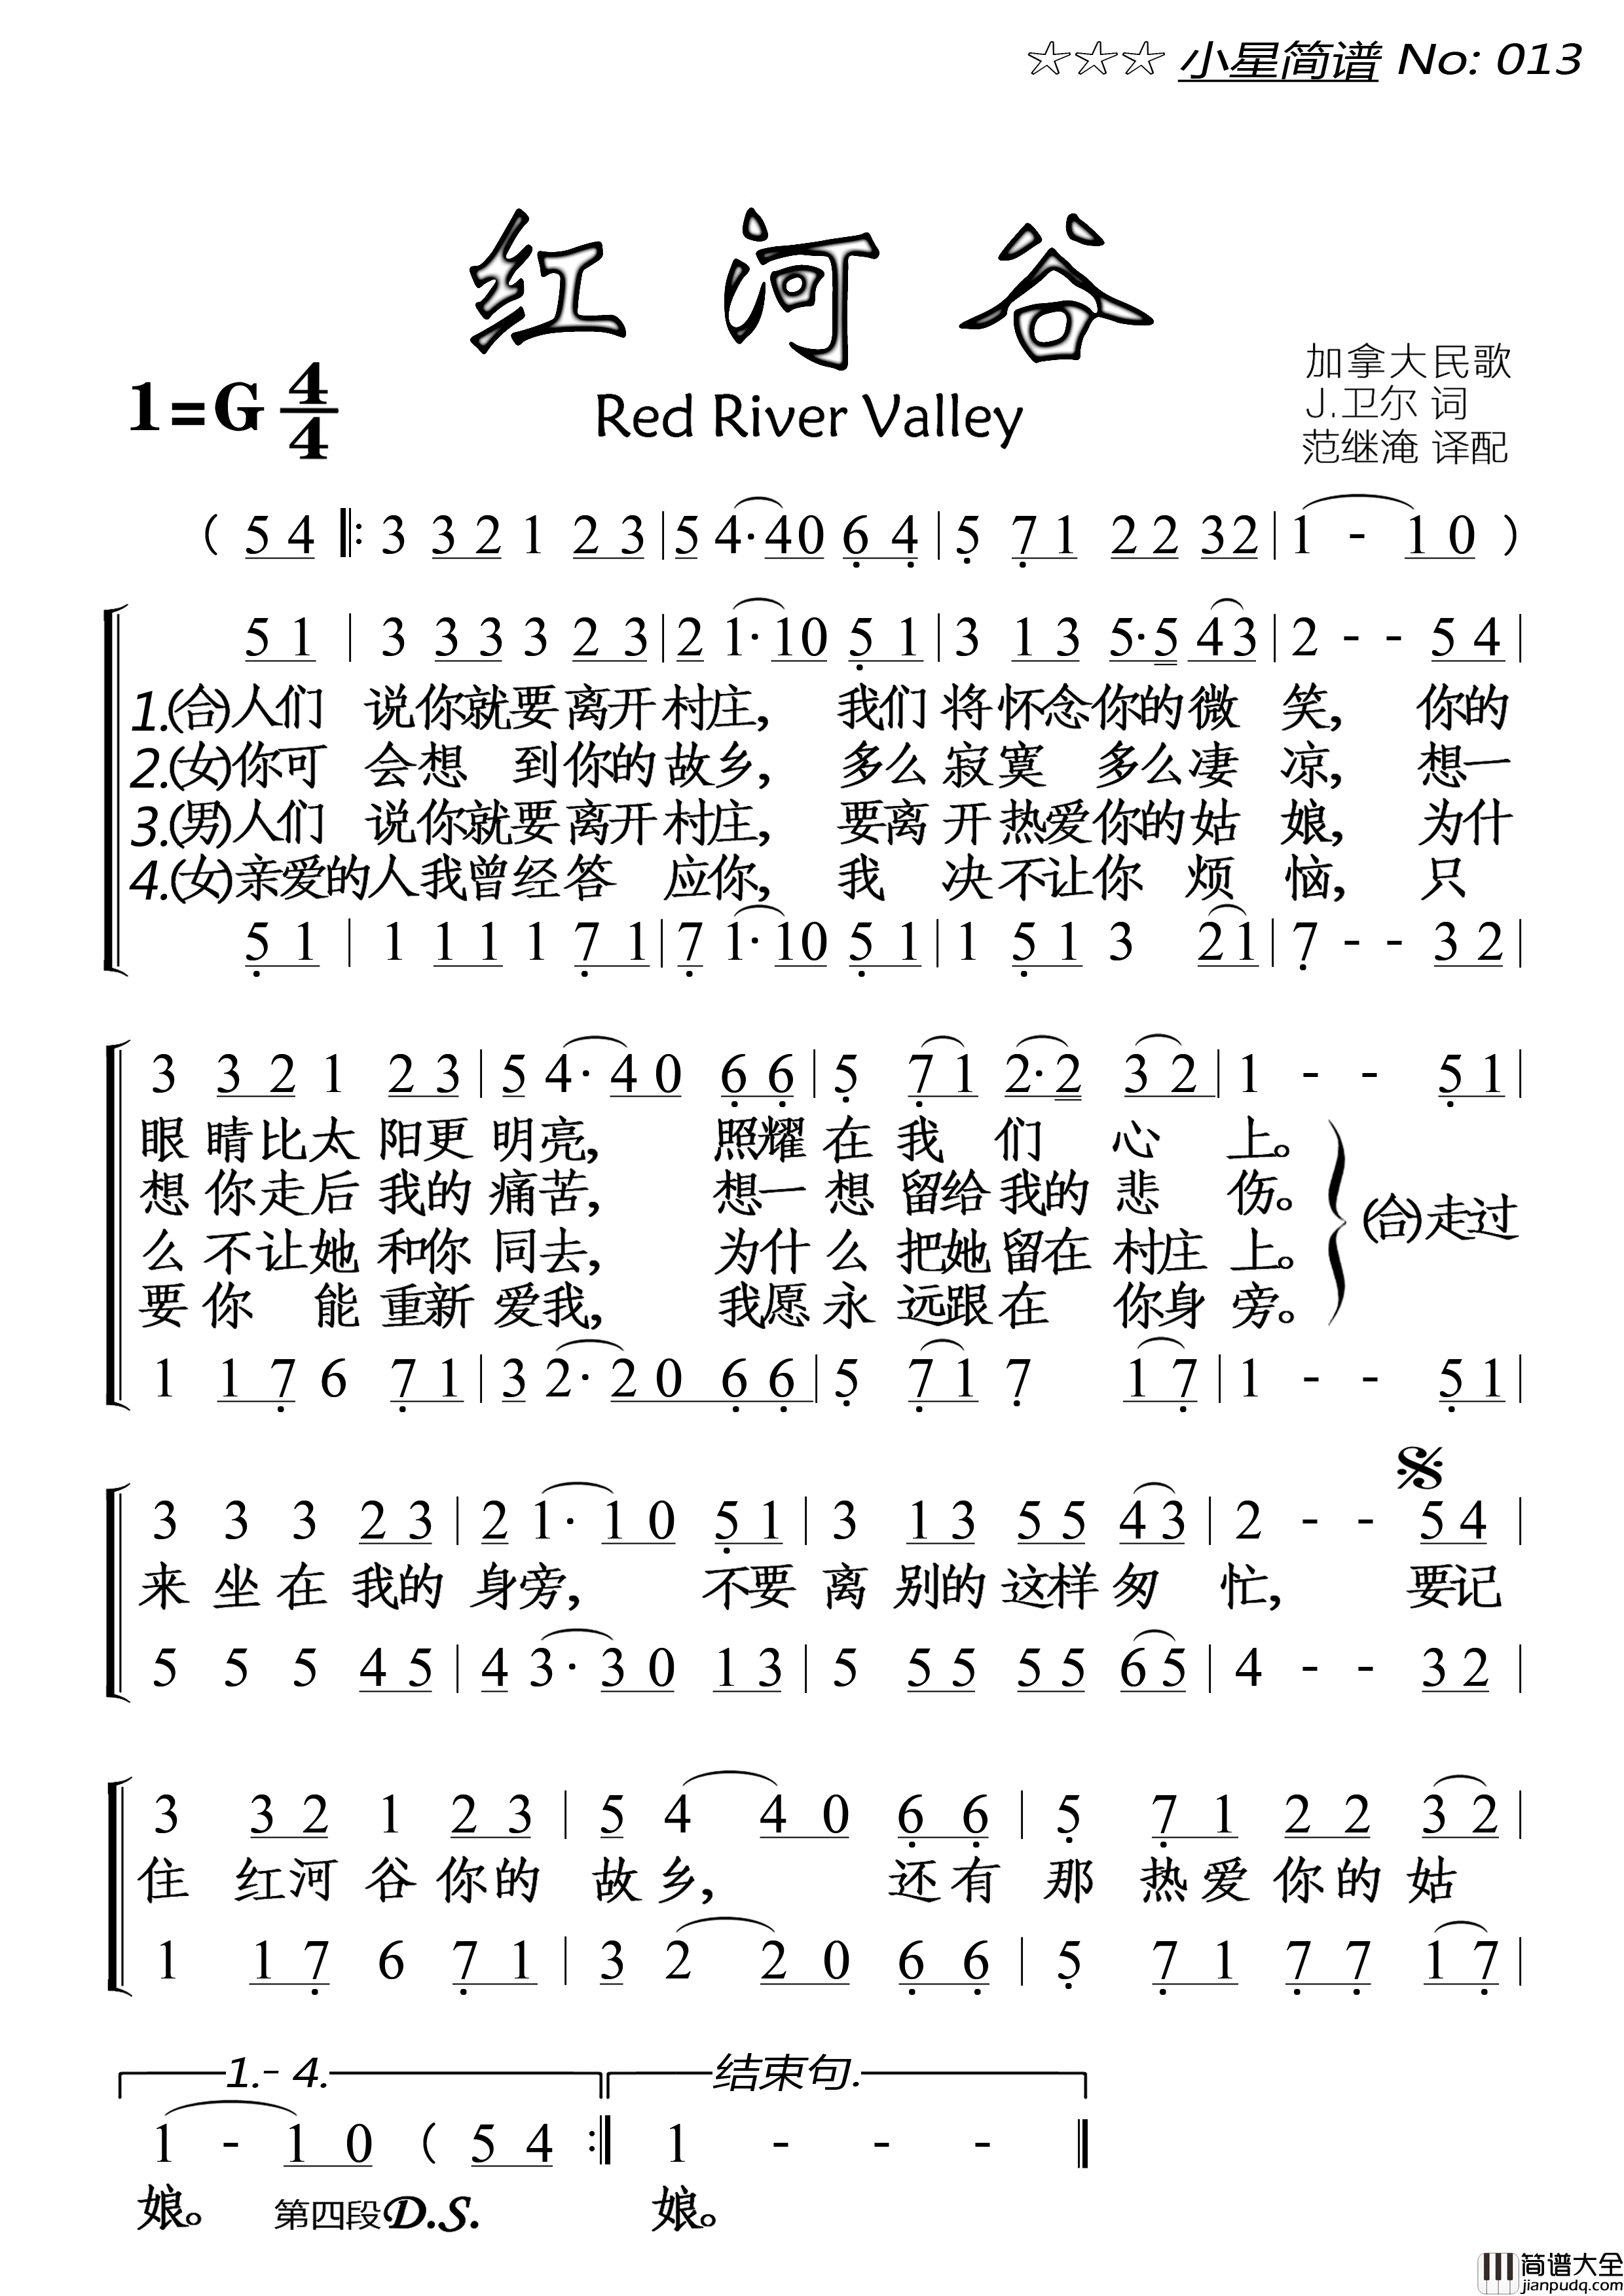 ☆☆☆ 小星简谱 No: 013
红河谷
1=G 4/4
Red River Valley
加拿大民歌
J.卫尔 词
范继淹 译配
( 5 4 ‖: 3 3 2 1 2 3 | 5 4· 4 0 6̣ 4̣ | 5̣ 7̣ 1 2 2 3 2 | 1 - 1 0 )
5 1 | 3 3 3 3 2 3 | 2 1· 1 0 5̣ 1 | 3 1 3 5· 5 4 3 | 2 - - 5 4 |
1.(合)人们 说你就要离开村庄, 我们将怀念你的微 笑, 你的
2.(女)你可 会想 到你的故乡, 多么寂寞 多么凄 凉, 想一
3.(男)人们 说你就要离开村庄, 要离开热爱你的姑 娘, 为什
4.(女)亲爱的人我曾经答 应你, 我 决不让你 烦 恼, 只
5̣ 1 | 1 1 1 1 7̣ 1 | 7̣ 1· 1 0 5̣ 1 | 1 5̣ 1 3 2 1 | 7̣ - - 3 2 |
3 3 2 1 2 3 | 5 4· 4 0 6̣ 6̣ | 5̣ 7̣ 1 2· 2 3 2 | 1 - - 5̣ 1 |
眼 睛比太 阳更 明亮, 照耀在我 们 心 上。
想 你走后 我的 痛苦, 想一想 留给我的 悲 伤。
(合)走过
么 不让她 和你 同去, 为什么 把她留在 村庄 上。
要 你 能 重新 爱我, 我愿永 远跟在 你身 旁。
1 1 7̣ 6 7̣ 1 | 3 2· 2 0 6̣ 6̣ | 5̣ 7̣ 1 7̣ 1 7̣ | 1 - - 5̣ 1 |
3 3 3 2 3 | 2 1· 1 0 5̣ 1 | 3 1 3 5 5 4 3 | 2 - - 5 4 |
来 坐 在 我的 身旁, 不要 离 别的 这样 匆 忙, 要记
5 5 5 4 5 | 4 3· 3 0 1 3 | 5 5 5 5 5 6 5 | 4 - - 3 2 |
3 3 2 1 2 3 | 5 4 4 0 6̣ 6̣ | 5̣ 7̣ 1 2 2 3 2 |
住 红河 谷 你的 故 乡, 还有 那 热爱 你的 姑
1 1 7̣ 6 7̣ 1 | 3 2 2 0 6̣ 6̣ | 5̣ 7̣ 1 7̣ 7̣ 1 7̣ |
1.- 4. 结束句.
1 - 1 0 ( 5 4 :‖ 1 - - - ‖
娘。 第四段D.S. 娘。
简谱大全
jianpudq.com